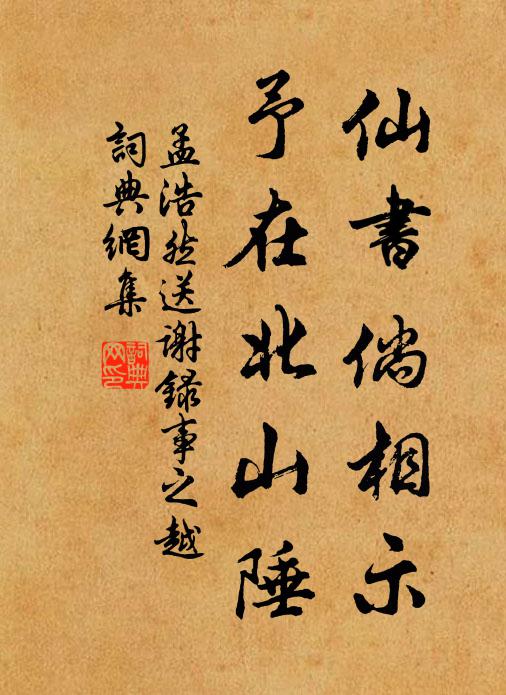 仙書倘相示
予在北山陲
孟浩然送謝録事之越
詞典網集
詞典網印